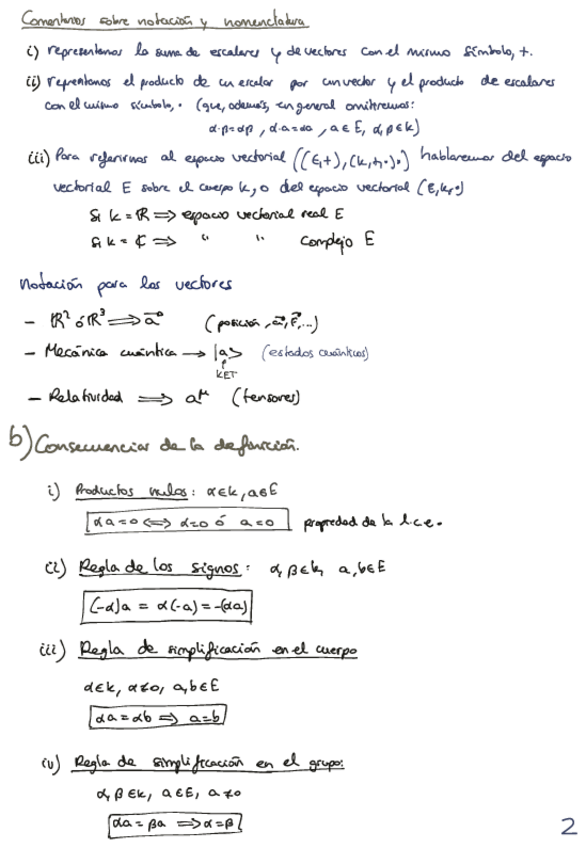 Comentarios sobre notación y nomenclatura
i) representamos la suma de escalares y de vectores con el mismo símbolo, +.
ii) representamos el producto de un escalar por un vector y el producto de escalares
con el mismo símbolo, · (que, además, en general omitiremos:
α·β=αβ, α·a=αa, a∈E, α,β∈k)
iii) Para referirnos al espacio vectorial ((E,+),(k,+,·),·) hablaremos del espacio
vectorial E sobre el cuerpo k, o del espacio vectorial (E,k,·)
Si k = ℝ ⟹ espacio vectorial real E
si k = ℂ ⟹ " " complejo E
Notación para los vectores
- ℝ² ó ℝ³ ⟹ a⃗ (posición, a⃗, F⃗,...)
- Mecánica cuántica → |a> (estados cuánticos)
KET
- Relatividad ⟹ a^μ (tensores)
b) Consecuencias de la definición.
i) Productos nulos: α∈k, a∈E
αa=0 ⟺ α=0 ó a=0 propiedad de la l.c.e.
ii) Regla de los signos: α,β∈k, a,b∈E
(-α)a = α(-a) = -(αa)
iii) Regla de simplificación en el cuerpo
α∈k, α≠0, a,b∈E
αa = αb ⟹ a=b
iv) Regla de simplificación en el grupo:
α,β∈k, a∈E, a≠0
αa = βa ⟹ α=β
2